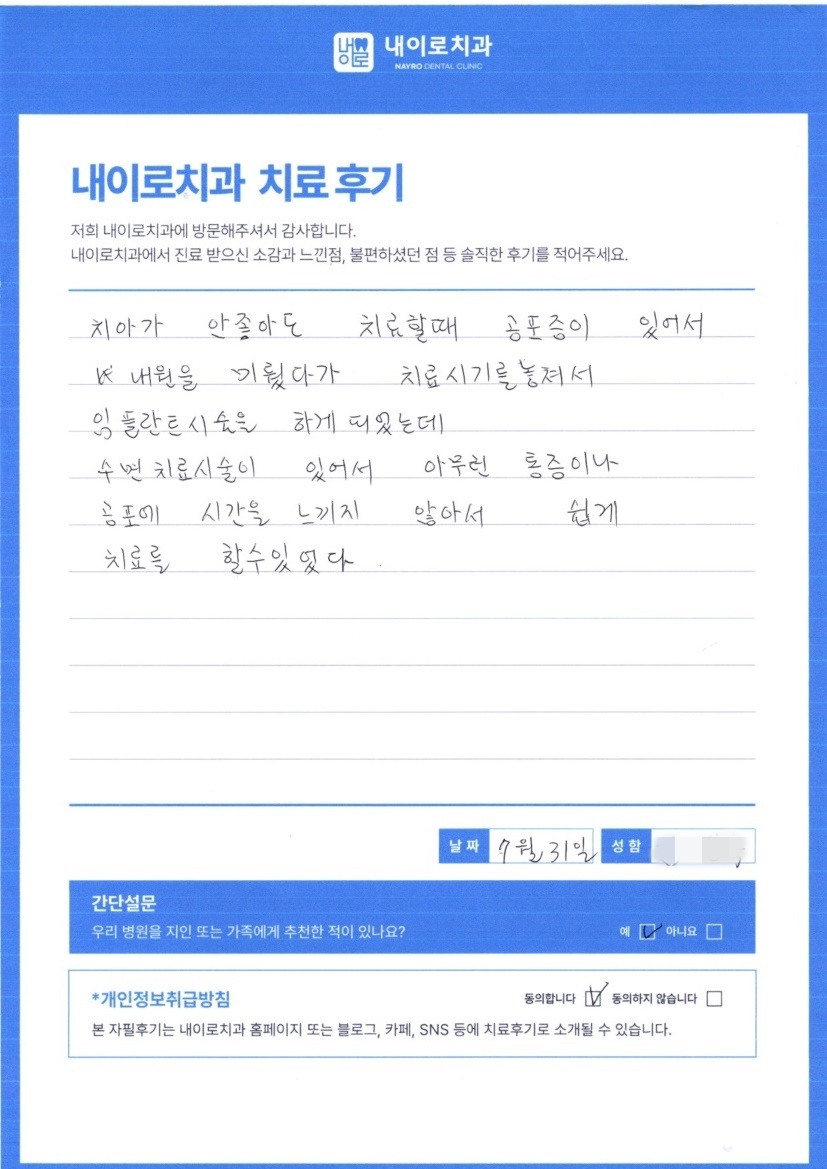 내이로
내이로치과
NAYRO DENTAL CLINIC
내이로치과 치료 후기
저희 내이로치과에 방문해주셔서 감사합니다.
내이로치과에서 진료 받으신 소감과 느낀점, 불편하셨던 점 등 솔직한 후기를 적어주세요.
치아가 안좋아도 치료할때 공포증이 있어서
내원을 미뤘다가 치료시기를놓져서
임플란트시술을 하게 되었는데
수면 치료시술이 있어서 아무런 통증이나
공포에 시간을 느끼지 않아서 쉽게
치료를 할수있었다.
날짜 7월 31일 성함
간단설문
우리 병원을 지인 또는 가족에게 추천한 적이 있나요? 예 아니요
*개인정보취급방침 동의합니다 동의하지 않습니다
본 자필후기는 내이로치과 홈페이지 또는 블로그, 카페, SNS 등에 치료후기로 소개될 수 있습니다.